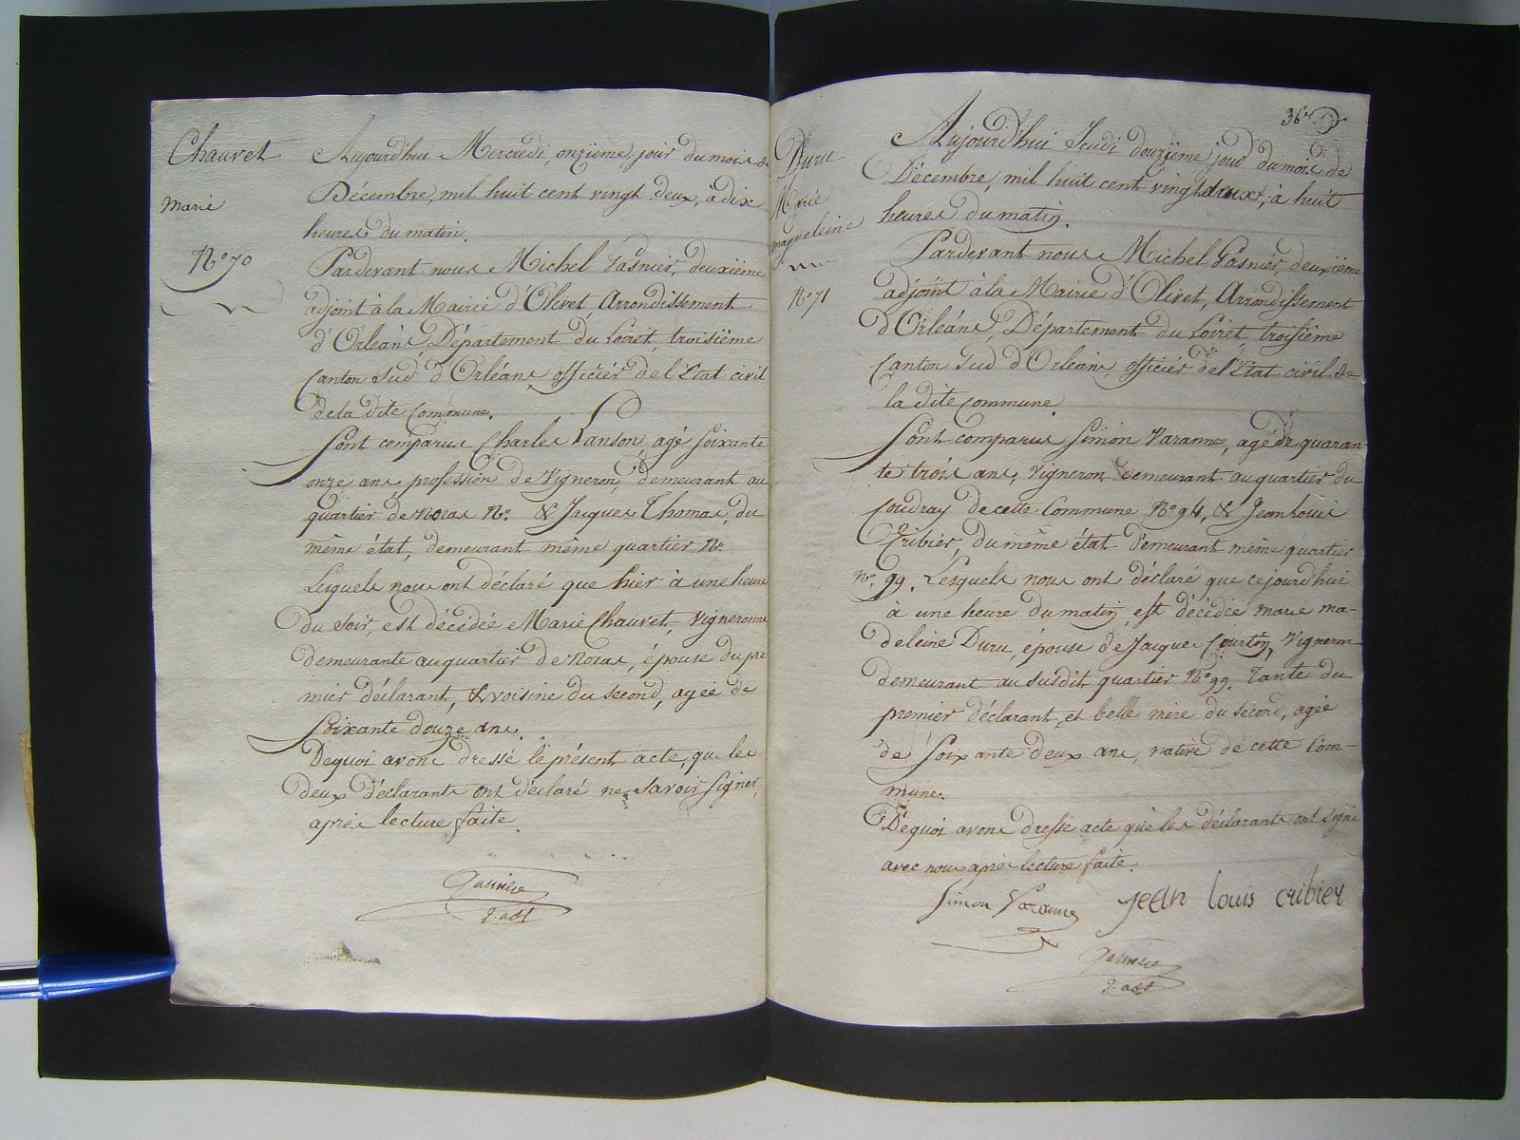 Chauvet
Marie
N° 70
Aujourd'hui Mercredi onzième jour du mois de
Décembre, mil huit cent vingt deux, à dix
heures du matin.
Pardevant nous Michel Gasnier, deuxième
adjoint à la Mairie d'Olivet, Arrondissement
d'Orléans Département du Loiret, troisième
Canton Sud d'Orléans officier de l'Etat civil
de la dite Commune.
Sont comparus Charles Sanson, agé soixante
onze ans, profession de Vigneron, demeurant au
quartier de Noras N°. & Jacques Thomas, du
même état, demeurant même quartier N°
Lesquels nous ont déclaré que hier à une heure
du soir, est décédée Marie Chauvet, Vigneronne
demeurante au quartier de Noras, épouse du pre
mier déclarant, & voisine du second, agée de
Soixante douze ans.
De quoi avons dressé le présent acte, que les
deux déclarants ont déclaré ne savoir signer,
après lecture faite.
Gasnier
2. adt
36
Duru
Marie
magdeleine
N° 71
Aujourd'hui Jeudi douzième jour du mois de
Décembre, mil huit cent vingt deux, à huit
heures du matin.
Pardevant nous Michel Gasnier, deuxième
adjoint à la Mairie d'Olivet, Arrondissement
d'Orléans, Département du Loiret, troisième
Canton Sud d'Orléans officier de l'Etat civil de
la dite commune.
Sont comparus Simon Varanne, agé de quaran-
te trois ans, Vigneron demeurant au quartier du
Coudray de cette Commune N° 94, & Jean Louis
Cribier, du même état demeurant même quartier
N°. 99. Lesquels nous ont déclaré que cejourd'hui
à une heure du matin, est décédée marie ma-
deleine Duru, épouse de Jacques Courtin, Vigneron
demeurant au susdit quartier N° 99. Tante du
premier déclarant, et belle mère du second, agée
de Soixante deux ans, native de cette Com-
mune.
De quoi avons dressé acte que les déclarants ont signé
avec nous après lecture faite.
Simon Varanne Jean Louis Cribier
Gasnier
2. adt